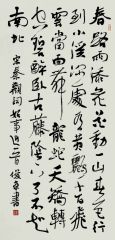 春路雨添花花動一山春色行
到小溪深處有黃鸝千百飛
雲當面化龍蛇夭矯轉
空碧醉臥古藤陰下了不知
南北 宋秦觀詞好事近一首 書